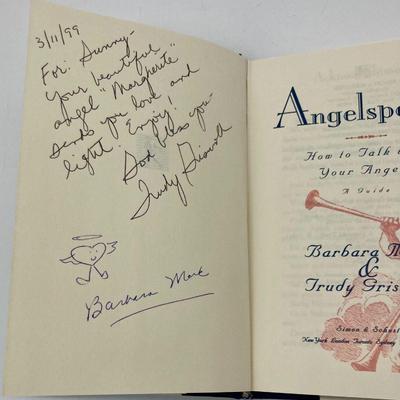 3/11/99
For: Sunny-
Your beautiful
angel "Marguerite"
sends you love and
light! Enjoy!
God bless you-
Trudy Griswold
Barbara Mark
Angelspe
How to Talk
Your Ange
A Guide
Barbara M
&
Trudy Gris
Simon & Schust
New York London Toronto Sydney